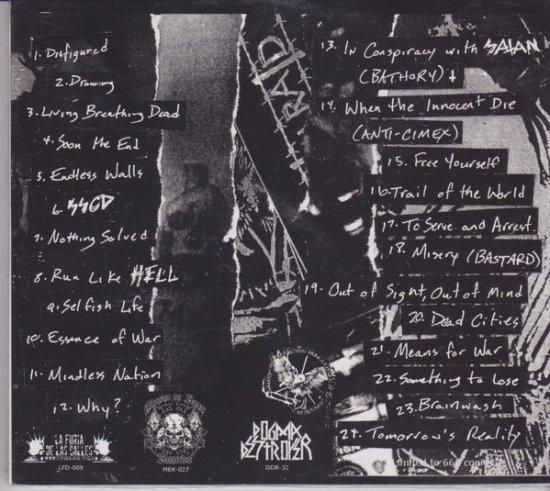 1. Disfigured
2. Drowning
3. Living Breathing Dead
4. Soon the End
5. Endless Walls
6. SSCD
7. Nothing Solved
8. Run Like HELL
9. Selfish Life
10. Essence of War
11. Mindless Nation
12. Why?
LA FURIA
DE LAS CALLES
LFD-009
MEK-027
DOGMA
DESTROYER
DDR-32
RAID
13. In Conspiracy with SATAN
(BATHORY)
14. When the Innocent Die
(ANTI-CIMEX)
15. Free Yourself
16. Trail of the World
17. To Serve and Arrest
18. Misery (BASTARD)
19. Out of Sight, Out of Mind
20. Dead Cities
21. Means for War
22. Something to Lose
23. Brainwash
24. Tomorrow's Reality
limited to 666 copies